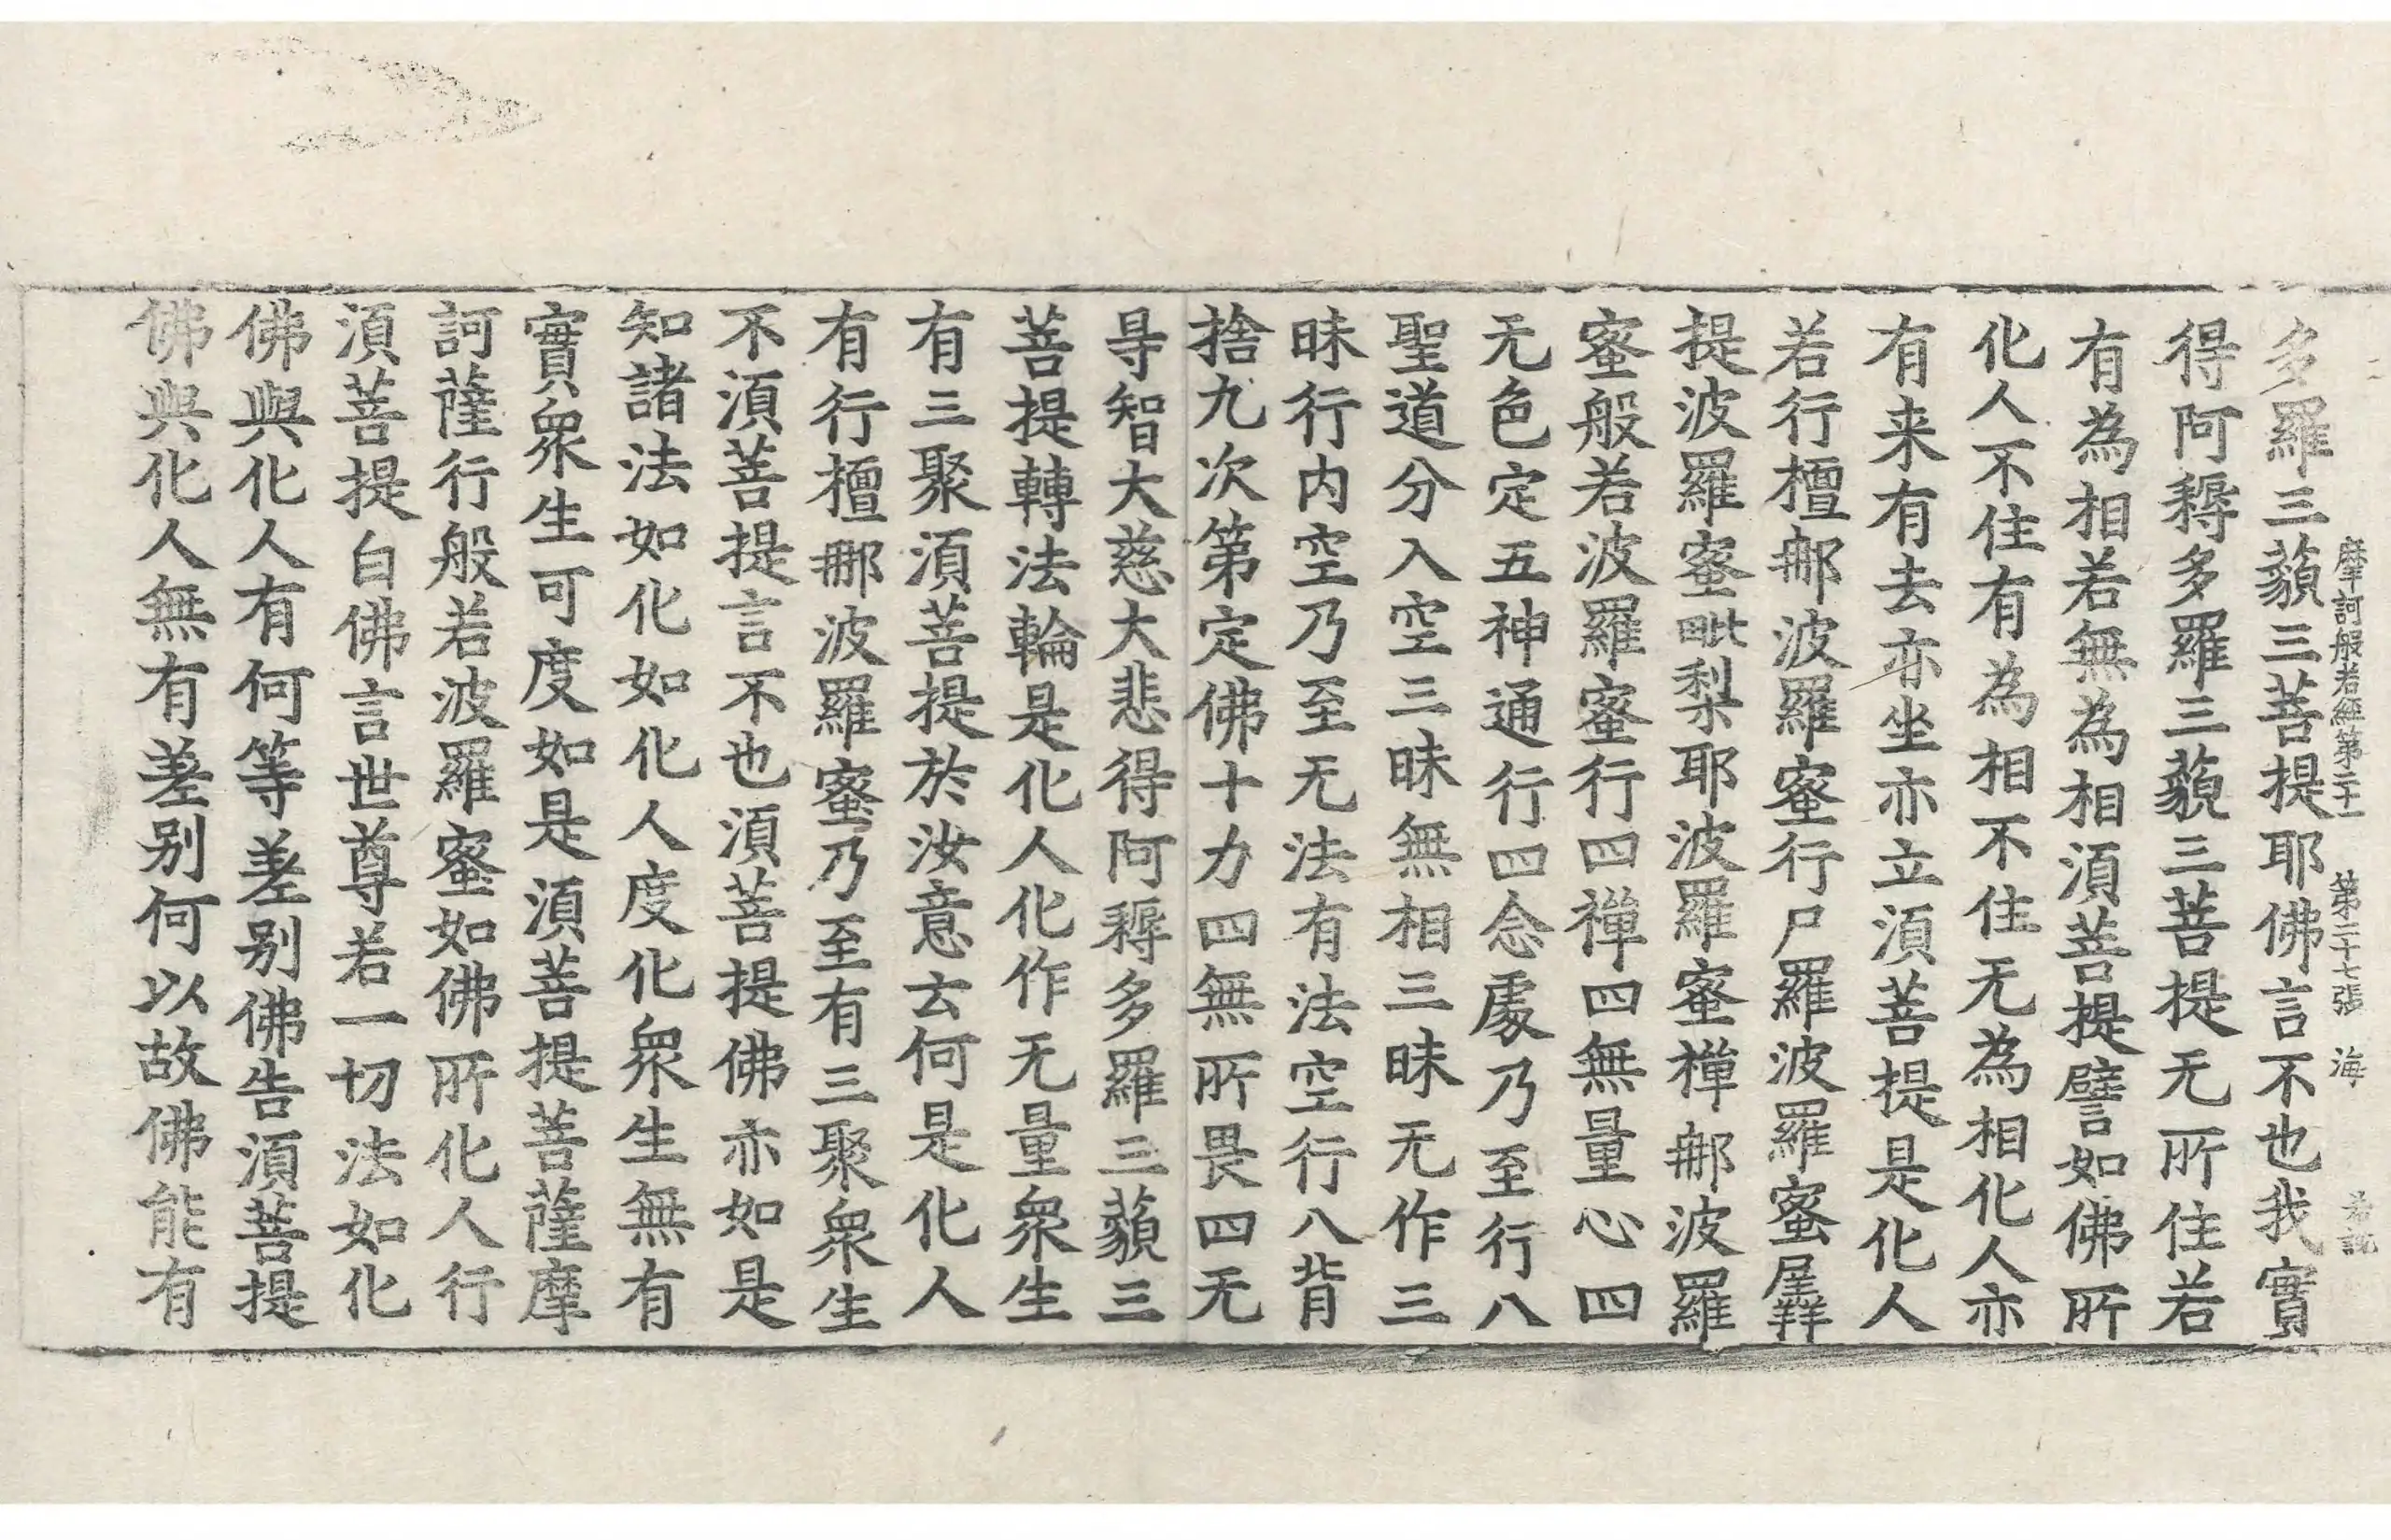 摩訶般若經第二十二　第二十七張　海
多羅三藐三菩提耶佛言不也我實
得阿耨多羅三藐三菩提无所住若
有為相若無為相湏菩提譬如佛所
化人不住有為相不住无為相化人亦
有来有去亦坐亦立湏菩提是化人
若行檀郍波羅蜜行尸羅波羅蜜羼
提波羅蜜毗梨耶波羅蜜禅郍波羅
蜜般若波羅蜜行四禅四無量心四
无色定五神通行四念處乃至行八
聖道分入空三昧無相三昧无作三
昧行内空乃至无法有法空行八背
捨九次第定佛十力四無所畏四无
㝵智大慈大悲得阿耨多羅三藐三
菩提轉法輪是化人化作无量衆生
有三聚湏菩提於汝意云何是化人
有行檀郍波羅蜜乃至有三聚衆生
不湏菩提言不也湏菩提佛亦如是
知諸法如化如化人度化衆生無有
實衆生可度如是湏菩提菩薩摩
訶薩行般若波羅蜜如佛所化人行
湏菩提白佛言世尊若一切法如化
佛與化人有何等差别佛告湏菩提
佛與化人無有差别何以故佛能有